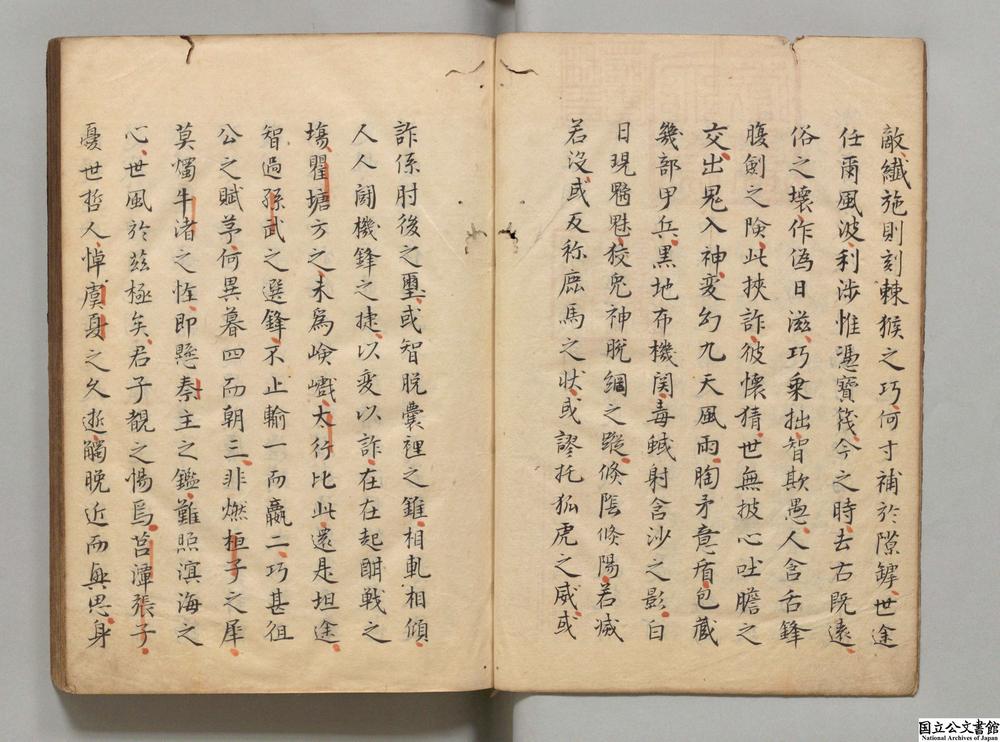 敵纎施則刻棘猴之巧何寸補於隙罅世途
任爾風波利涉惟憑寶筏今之時去古既遠
俗之壞作偽日滋巧乘拙智欺愚人含舌鋒
腹劍之險此挾詐彼懷猜世無披心吐膽之
交出鬼入神変幻九天風雨胸矛意盾包藏
幾部甲兵黑地布機関毒蜮射含沙之影白
日現魑魅狡兔神脫網之蹤倐陰倐陽若滅
若沒或反称鹿馬之状或謬托狐虎之威或
詐係肘後之璽或智脫囊裡之錐相軋相傾
人人闘機鋒之捷以変以詐在在起酣戰之
塲瞿塘方之未爲嶮巇太行比此還是坦途
智過孫武之選鋒不止輸一而贏二巧甚狙
公之賦芧何異暮四而朝三非燃桓子之犀
莫燭牛渚之怪即懸秦主之鑑難照滇海之
心世風於茲極矣君子覩之惕焉苕潭張子
憂世哲人悼虞夏之久逝觸晚近而興思身
国立公文書館
National Archives of Japan